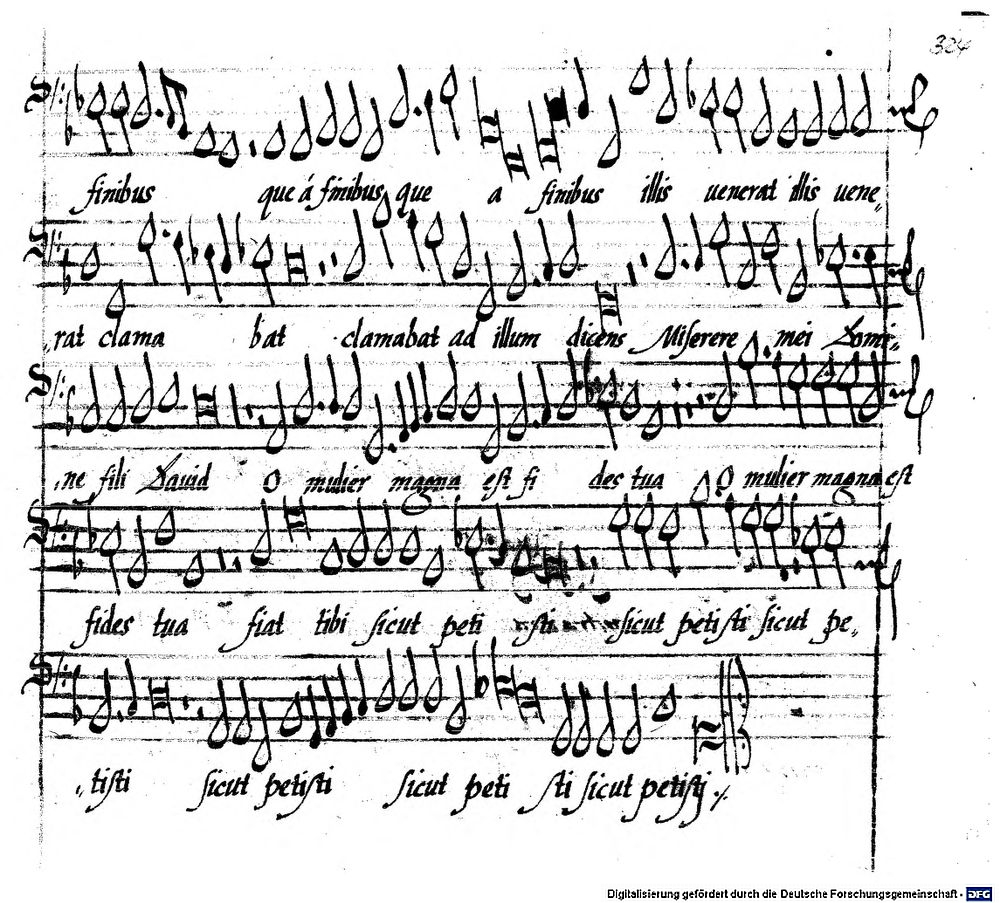 324
finibus que á finibus que a finibus illis uenerat illis uene„
„rat clama bat clamabat ad illum dicens Miserere mei Domi„
„ne fili Dauid O mulier magna est fi des tua O mulier magna est
fides tua fiat tibi sicut peti sti sicut petisti sicut pe„
„tisti sicut petisti sicut peti sti sicut petistj
Digitalisierung gefördert durch die Deutsche Forschungsgemeinschaft - DFG